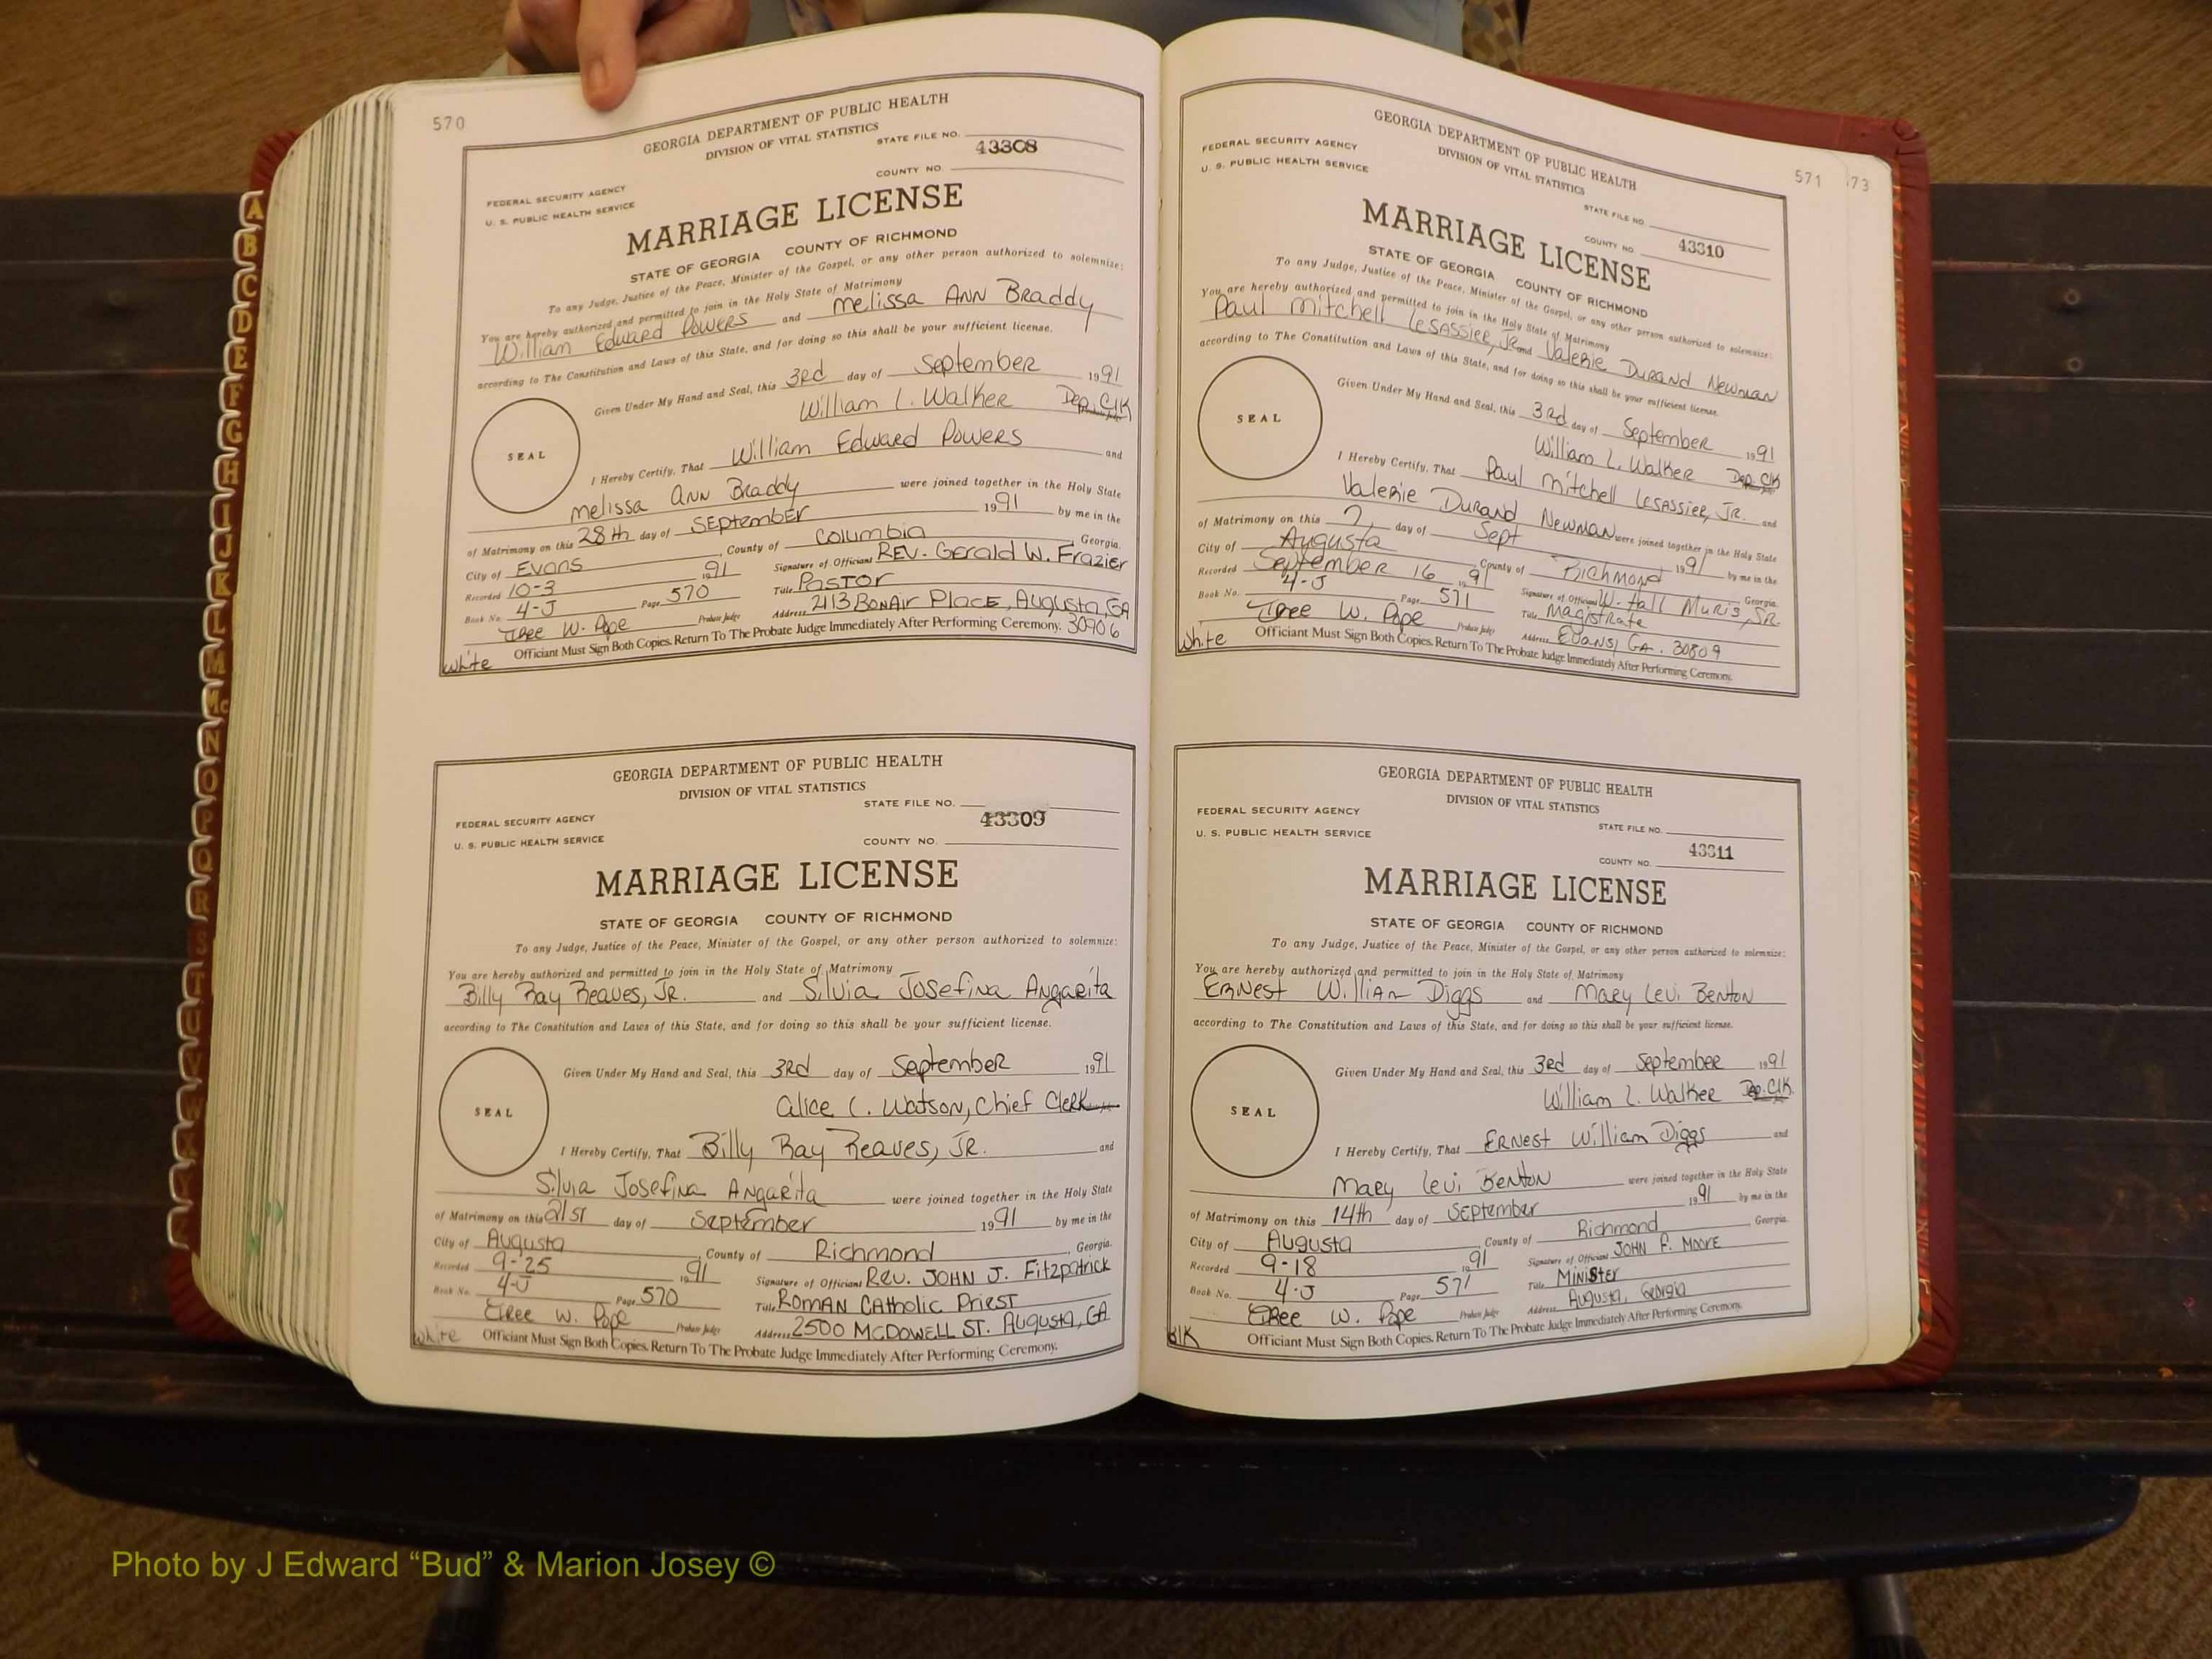 570
GEORGIA DEPARTMENT OF PUBLIC HEALTH
DIVISION OF VITAL STATISTICS
STATE FILE NO.
43308
COUNTY NO.
FEDERAL SECURITY AGENCY
U. S. PUBLIC HEALTH SERVICE
MARRIAGE LICENSE
STATE OF GEORGIA COUNTY OF RICHMOND
To any Judge, Justice of the Peace, Minister of the Gospel, or any other person authorized to solemnize:
You are hereby authorized and permitted to join in the Holy State of Matrimony
William Edward Powers and Melissa Ann Braddy
according to The Constitution and Laws of this State, and for doing so this shall be your sufficient license.
Given Under My Hand and Seal, this 3rd day of September 1991
William L. Walker Dep. Clk
SEAL
I Hereby Certify, That William Edward Powers and
Melissa Ann Braddy were joined together in the Holy State
of Matrimony on this 28th day of September 1991 by me in the
City of Evans, County of Columbia, Georgia.
Recorded 10-3 1991 Signature of Officiant Rev. Gerald W. Frazier
Book No. 4-J Page 570 Title Pastor
W. Pope Probate Judge Address 2113 BonAir Place, Augusta, GA 30906
Officiant Must Sign Both Copies. Return To The Probate Judge Immediately After Performing Ceremony.
White
GEORGIA DEPARTMENT OF PUBLIC HEALTH
DIVISION OF VITAL STATISTICS
STATE FILE NO.
43309
FEDERAL SECURITY AGENCY
U. S. PUBLIC HEALTH SERVICE
COUNTY NO.
MARRIAGE LICENSE
STATE OF GEORGIA COUNTY OF RICHMOND
To any Judge, Justice of the Peace, Minister of the Gospel, or any other person authorized to solemnize:
You are hereby authorized and permitted to join in the Holy State of Matrimony
Billy Ray Reaves, Jr. and Silvia Josefina Angarita
according to The Constitution and Laws of this State, and for doing so this shall be your sufficient license.
Given Under My Hand and Seal, this 3rd day of September 1991
Alice C. Watson, Chief Clerk
SEAL
I Hereby Certify, That Billy Ray Reaves, Jr. and
Silvia Josefina Angarita were joined together in the Holy State
of Matrimony on this 21st day of September 1991 by me in the
City of Augusta, County of Richmond, Georgia.
Recorded 9-25 1991 Signature of Officiant Rev. John J. Fitzpatrick
Book No. 4-J Page 570 Title Roman Catholic Priest
W. Pope Probate Judge Address 2500 McDowell St. Augusta, GA
Officiant Must Sign Both Copies. Return To The Probate Judge Immediately After Performing Ceremony.
White
571 73
GEORGIA DEPARTMENT OF PUBLIC HEALTH
DIVISION OF VITAL STATISTICS
FEDERAL SECURITY AGENCY
U. S. PUBLIC HEALTH SERVICE
STATE FILE NO.
43310
COUNTY NO.
MARRIAGE LICENSE
STATE OF GEORGIA COUNTY OF RICHMOND
To any Judge, Justice of the Peace, Minister of the Gospel, or any other person authorized to solemnize:
You are hereby authorized and permitted to join in the Holy State of Matrimony
Paul Mitchell LeSassier, Jr. and Valerie Durand Newman
according to The Constitution and Laws of this State, and for doing so this shall be your sufficient license.
Given Under My Hand and Seal, this 3rd day of September 1991
William L. Walker Dep. Clk
SEAL
I Hereby Certify, That Paul Mitchell LeSassier, Jr. and
Valerie Durand Newman were joined together in the Holy State
of Matrimony on this 7 day of Sept 1991 by me in the
City of Augusta County of Richmond Georgia.
Recorded September 16 1991 Signature of Officiant W. Hall Sr.
Book No. 4-J Page 571 Title Magistrate
W. Pope Probate Judge Address Evans, GA. 30809
Officiant Must Sign Both Copies. Return To The Probate Judge Immediately After Performing Ceremony.
White
GEORGIA DEPARTMENT OF PUBLIC HEALTH
DIVISION OF VITAL STATISTICS
FEDERAL SECURITY AGENCY
U. S. PUBLIC HEALTH SERVICE
STATE FILE NO.
43311
COUNTY NO.
MARRIAGE LICENSE
STATE OF GEORGIA COUNTY OF RICHMOND
To any Judge, Justice of the Peace, Minister of the Gospel, or any other person authorized to solemnize:
You are hereby authorized and permitted to join in the Holy State of Matrimony
Ernest William Diggs and Mary Levi Benton
according to The Constitution and Laws of this State, and for doing so this shall be your sufficient license.
Given Under My Hand and Seal, this 3rd day of September 1991
William L. Walker Dep. Clk.
SEAL
I Hereby Certify, That Ernest William Diggs and
Mary Levi Benton were joined together in the Holy State
of Matrimony on this 14th day of September 1991 by me in the
City of Augusta, County of Richmond, Georgia.
Recorded 9-18 1991 Signature of Officiant John F. Moore
Book No. 4-J Page 571 Title Minister
W. Pope Probate Judge Address Augusta, Georgia
Officiant Must Sign Both Copies. Return To The Probate Judge Immediately After Performing Ceremony.
Blk
A
B
C
D
E
F
G
H
I
J
K
L
M
Mc
N
O
P
Q
R
S
T
U
Photo by J Edward “Bud” & Marion Josey ©